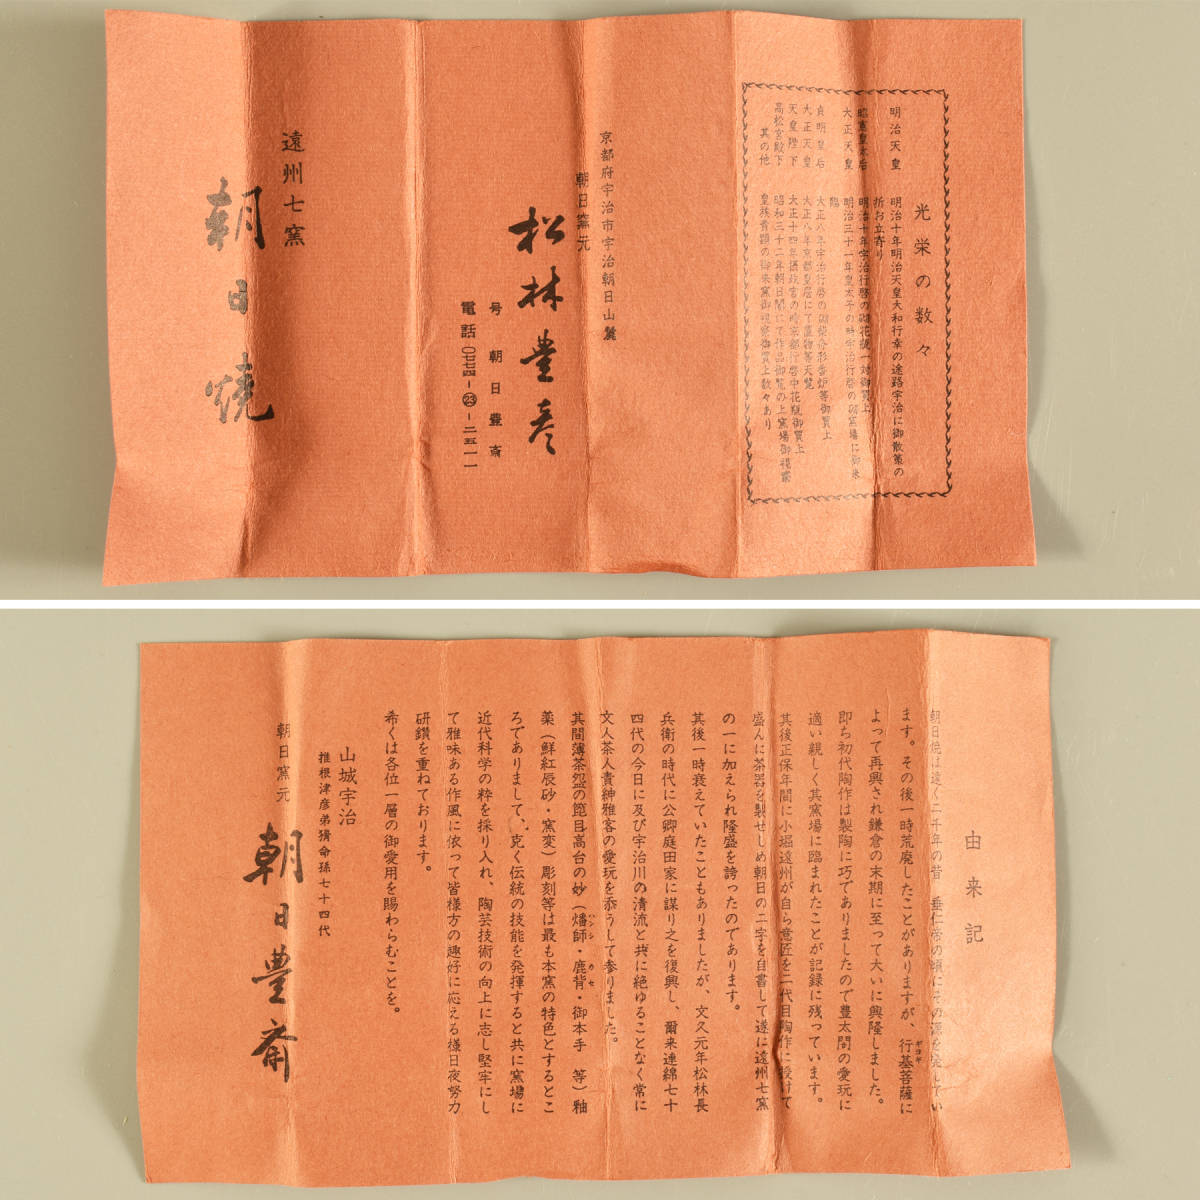 光栄の数々
明治天皇 明治十年明治天皇大和行幸の途路宇治に御散策の
折お立寄り
昭憲皇太后 明治十年宇治行啓の御花瓶一対御買上
大正天皇 明治三十一年皇太子の時宇治行啓の砌窯場に御来
臨
貞明皇后 大正八年宇治行啓の御柴舟形香炉等御買上
大正天皇 大正八年京都皇居にて置物等天覧
天皇陛下 大正十四年摂政宮の時京都行啓中花瓶御買上
高松宮殿下 昭和三十二年朝日閣にて作品御覧の上窯場御視察
其の他 皇族首題の御来窯御視察御買上数々あり
京都府宇治市宇治朝日山麓
朝日窯元
松林豊彦
号 朝日豊斎
電話〇七七四-㉓-二五一一
遠州七窯
朝日焼
由来記
朝日焼は遠く二千年の昔 垂仁帝の頃にその源を発してい
ます。その後一時荒廃したことがありますが、行基菩薩に
ギヨギ
よって再興され鎌倉の末期に至って大いに興隆しました。
即ち初代陶作は製陶に巧でありましたので豊太閤の愛玩に
適い親しく其窯場に臨まれたことが記録に残っています。
其後正保年間に小堀遠州が自ら意匠を二代目陶作に授けて
盛んに茶器を製せしめ朝日の二字を自書して遂に遠州七窯
の一に加えられ隆盛を誇ったのであります。
其後一時衰えていたこともありましたが、文久元年松林長
兵衛の時代に公卿庭田家に謀り之を復興し、爾来連綿七十
四代の今日に及び宇治川の清流と共に絶ゆることなく常に
文人茶人貴紳雅客の愛玩を忝うして参りました。
其間薄茶盌の箆目高台の妙(燔師・鹿背・御本手 等)釉
ハンシ カセ
薬(鮮紅辰砂・窯変)彫刻等は最も本窯の特色とするとこ
ろでありまして、克く伝統の技能を発揮すると共に窯場に
近代科学の粋を採り入れ、陶芸技術の向上に志し堅牢にし
て雅味ある作風に依って皆様方の趣好に応える様日夜努力
研鑽を重ねております。
希くは各位一層の御愛用を賜わらむことを。
山城宇治
椎根津彦弟猾命孫七十四代
朝日窯元
朝日豊斎